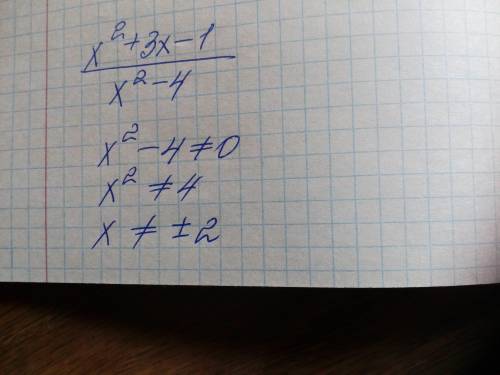 x²+3x-1
x²-4
x²-4≠0
x²≠4
x≠±2